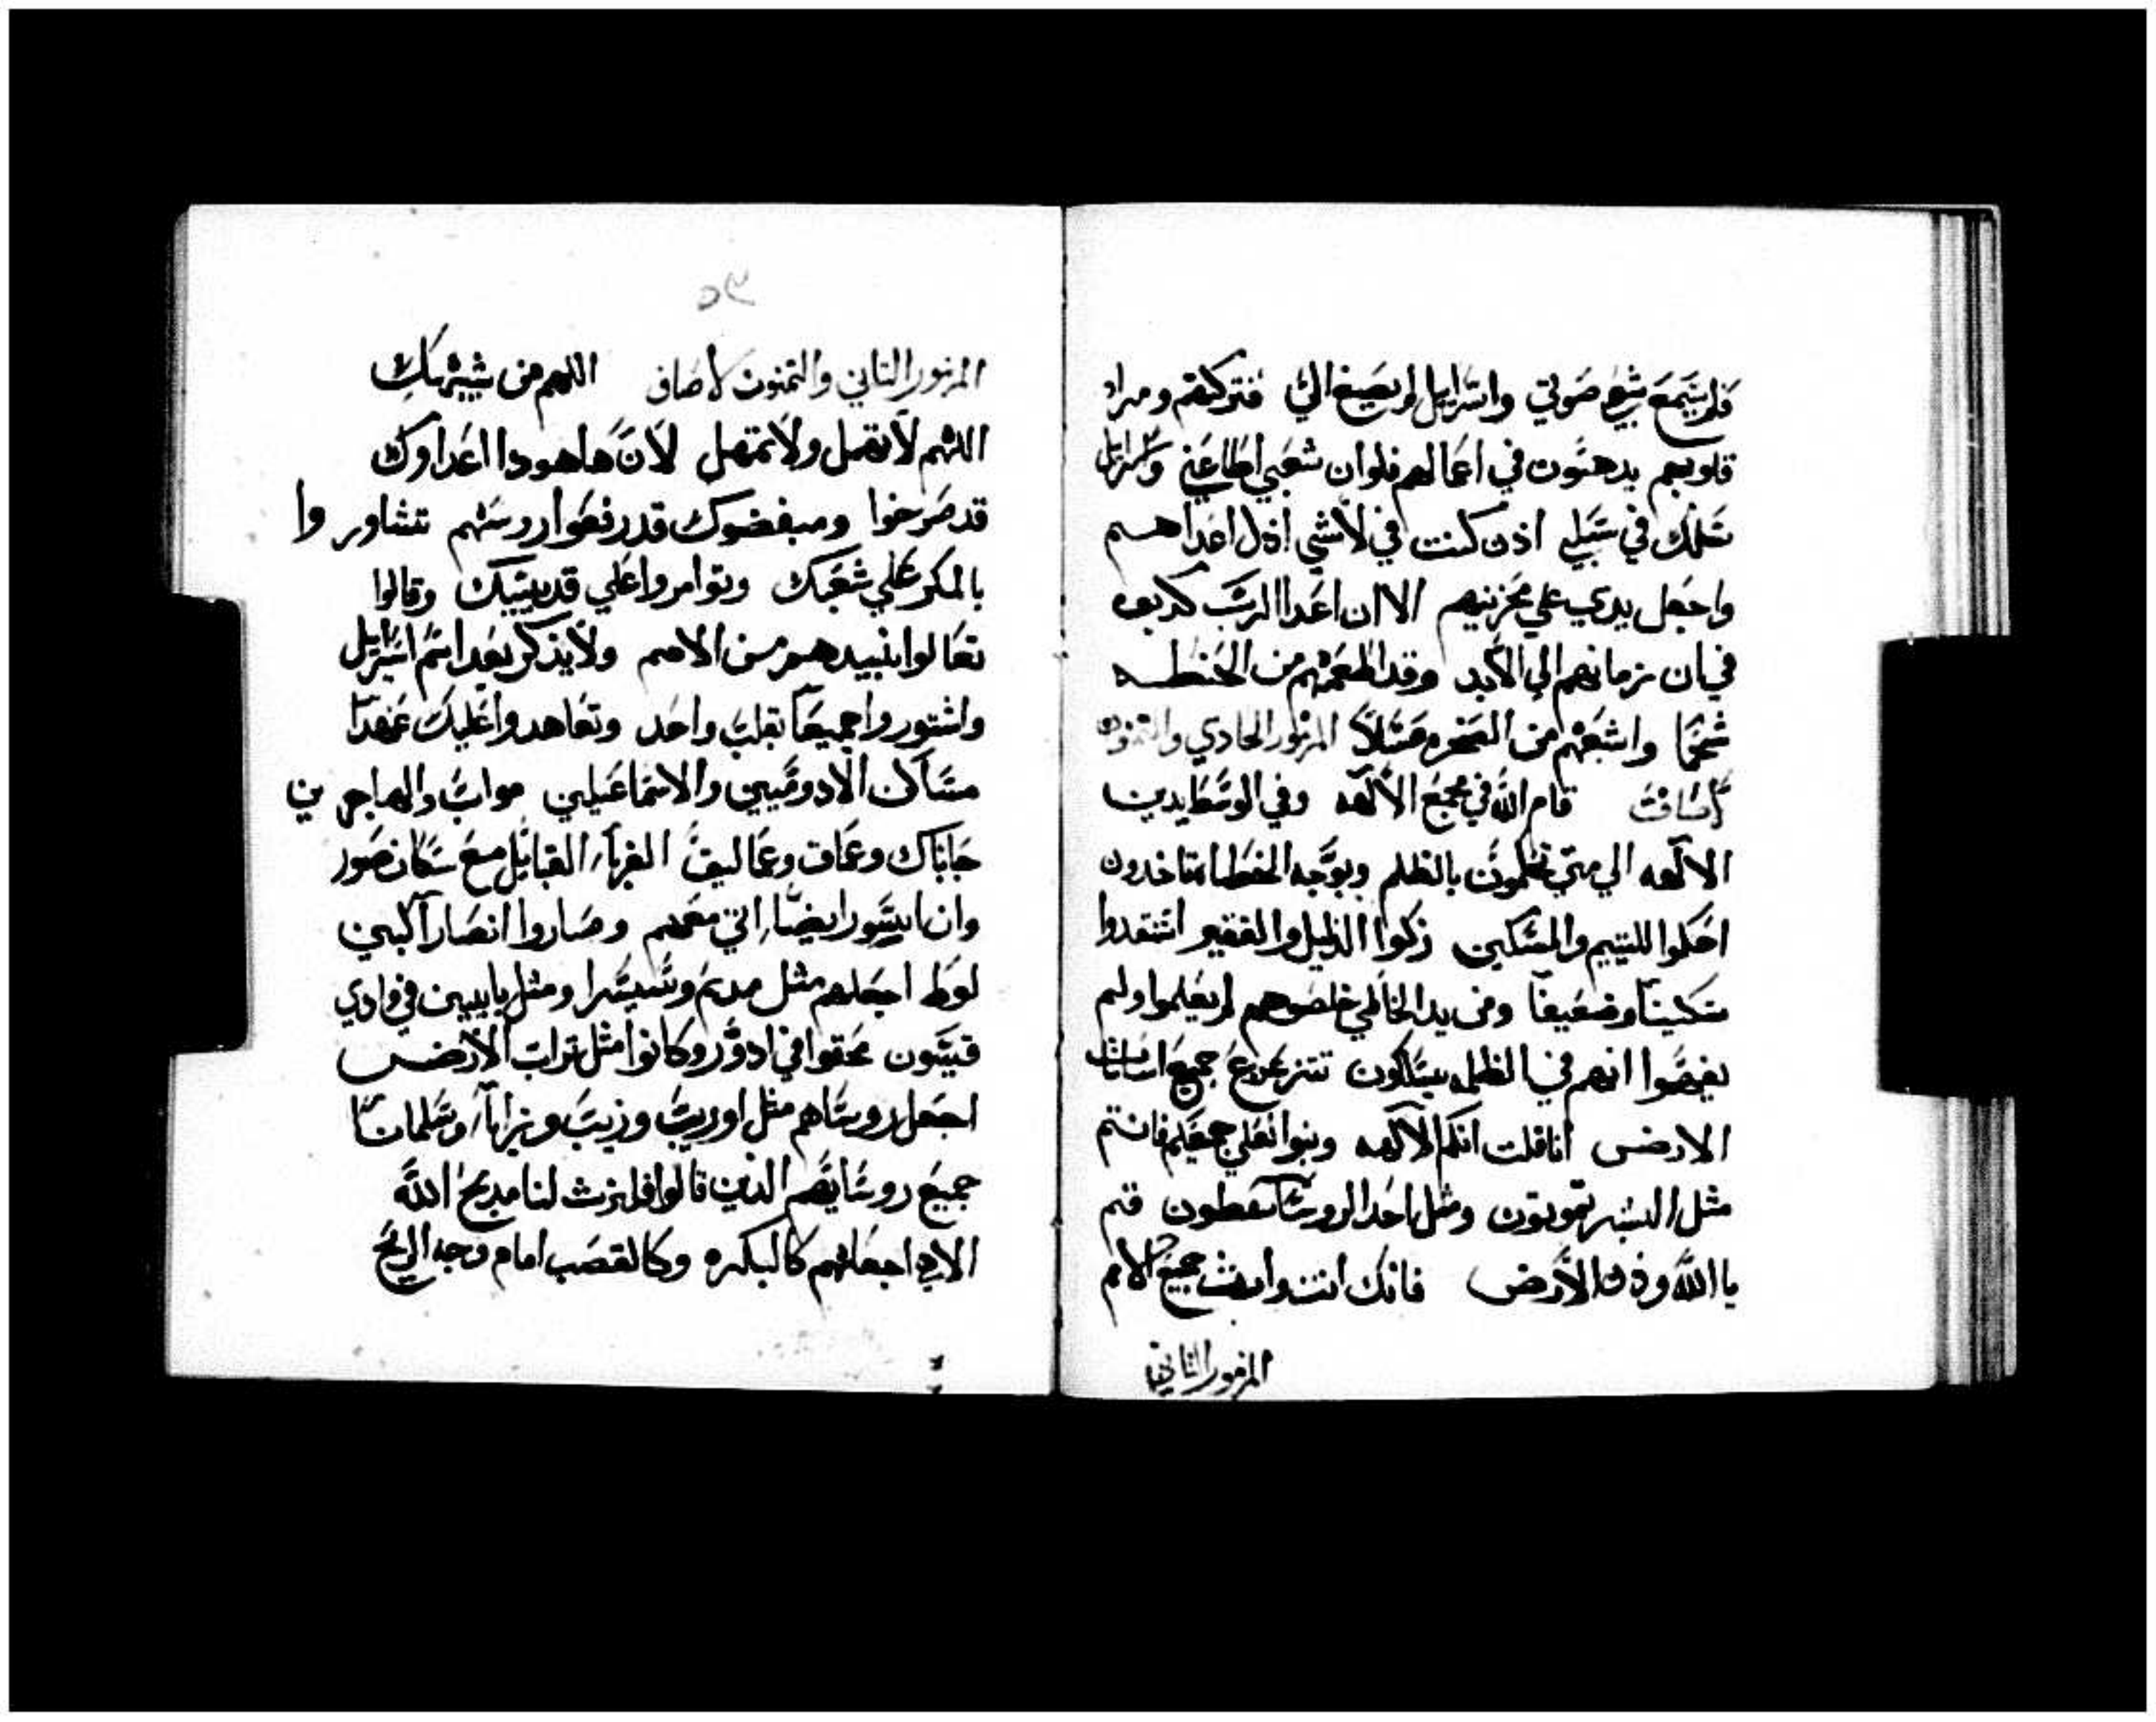 فلم يسمع شعبي صوتي واسراييل لم يصغ الي فتركتهم ومراد
قلوبهم يدهنون في اعمالهم فلوان شعبي اطاعني واسراييل
سلك في سبلي اذن كنت في لاشي اذل اعداهم
واجعل يدي علي محزنيهم الا ان اعدا الرب كدبوه
في ان زمانهم الي الابد وقد اطعمهم من الحنطه
شحمًا واشبعهم من الصخره عسلاً المزمور الحادي والثمنون
لاساف قام الله في مجمع الالهه وفي الوسط يدين
الالهه الي متي تحكمون بالظلم وبوجه الخطاه تاخدون
احكموا لليتيم والمسكين زكوا الذليل والفقير استنقدوا
مسكينًا وضعيفًا ومن يد الخاطي خلصوهم لم يعلموا ولم
يفهموا انهم في الظلمه يسلكون تتزعزع جميع اساسات
الارض انا قلت انكم الالهه وبنوا العلي جميعكم فانتم
مثل البشر تموتون ومثل احد الروسا تسقطون قم
يا الله ودن الارض فانك انت وارث جميع الامم
المزمور الثاني
٥٣
المزمور الثاني والثمنون لاصاف اللهم من يشبهك
اللهم لا تغفل ولا تمهل لان هاهودا اعداوك
قد صرخوا ومبغضوك قد رفعوا روسهم تشاوروا
بالمكر علي شعبك وتوامروا علي قديسيك وقالوا
تعالوا نبيدهم من الامم ولا يذكر بعد اسم اسراييل
واشتوروا جميعًا بقلب واحد وتعاهدوا عليك عهدًا
مساكن الادوميين والاسماعيلين مواب والهاجرين
جاباك وعمان وعماليق الغرباء القبايل مع سكان صور
وان ايسور ايضًا اتي معهم وصاروا انصارًا لبني
لوط اجعلهم مثل مديم وسيسرا ومثل يابيين في وادي
قيسون محقوا في ادور وكانوا مثل تراب الارض
اجعل روساهم مثل اوريب وزيب وزاباء وسلمانا
جميع روسايهم الذين قالوا فلنرث لنا مدبح الله
الاهي اجعلهم كالبكره وكالقصب امام وجه الريح